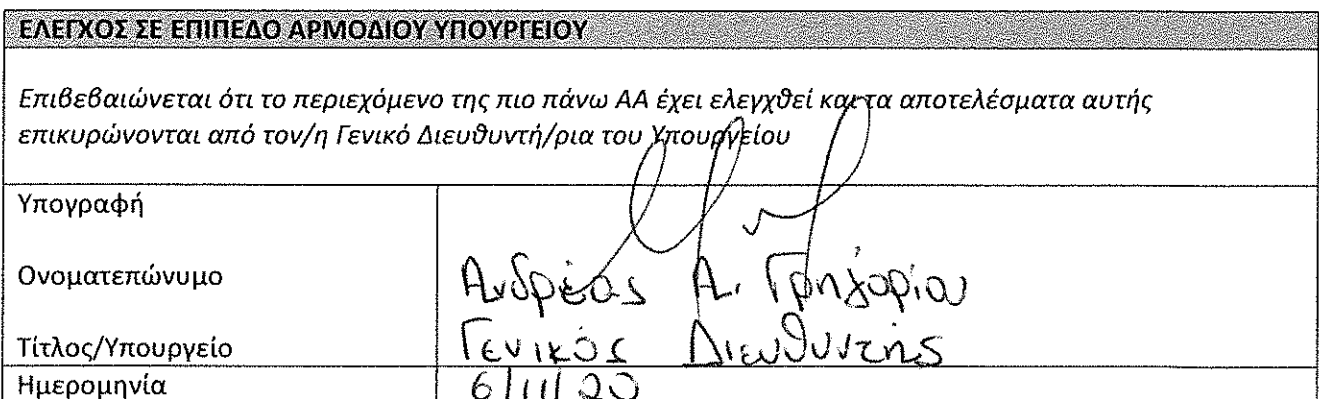 ΕΛΕΓΧΟΣ ΣΕ ΕΠΙΠΕΔΟ ΑΡΜΟΔΙΟΥ ΥΠΟΥΡΓΕΙΟΥ
Επιβεβαιώνεται ότι το περιεχόμενο της πιο πάνω ΑΑ έχει ελεγχθεί και τα αποτελέσματα αυτής
επικυρώνονται από τον/η Γενικό Διευθυντή/ρια του Υπουργείου
Υπογραφή
Ονοματεπώνυμο Ανδρέας Α. Γρηγορίου
Τίτλος/Υπουργείο Γενικός Διευθυντής
Ημερομηνία 6/11/20